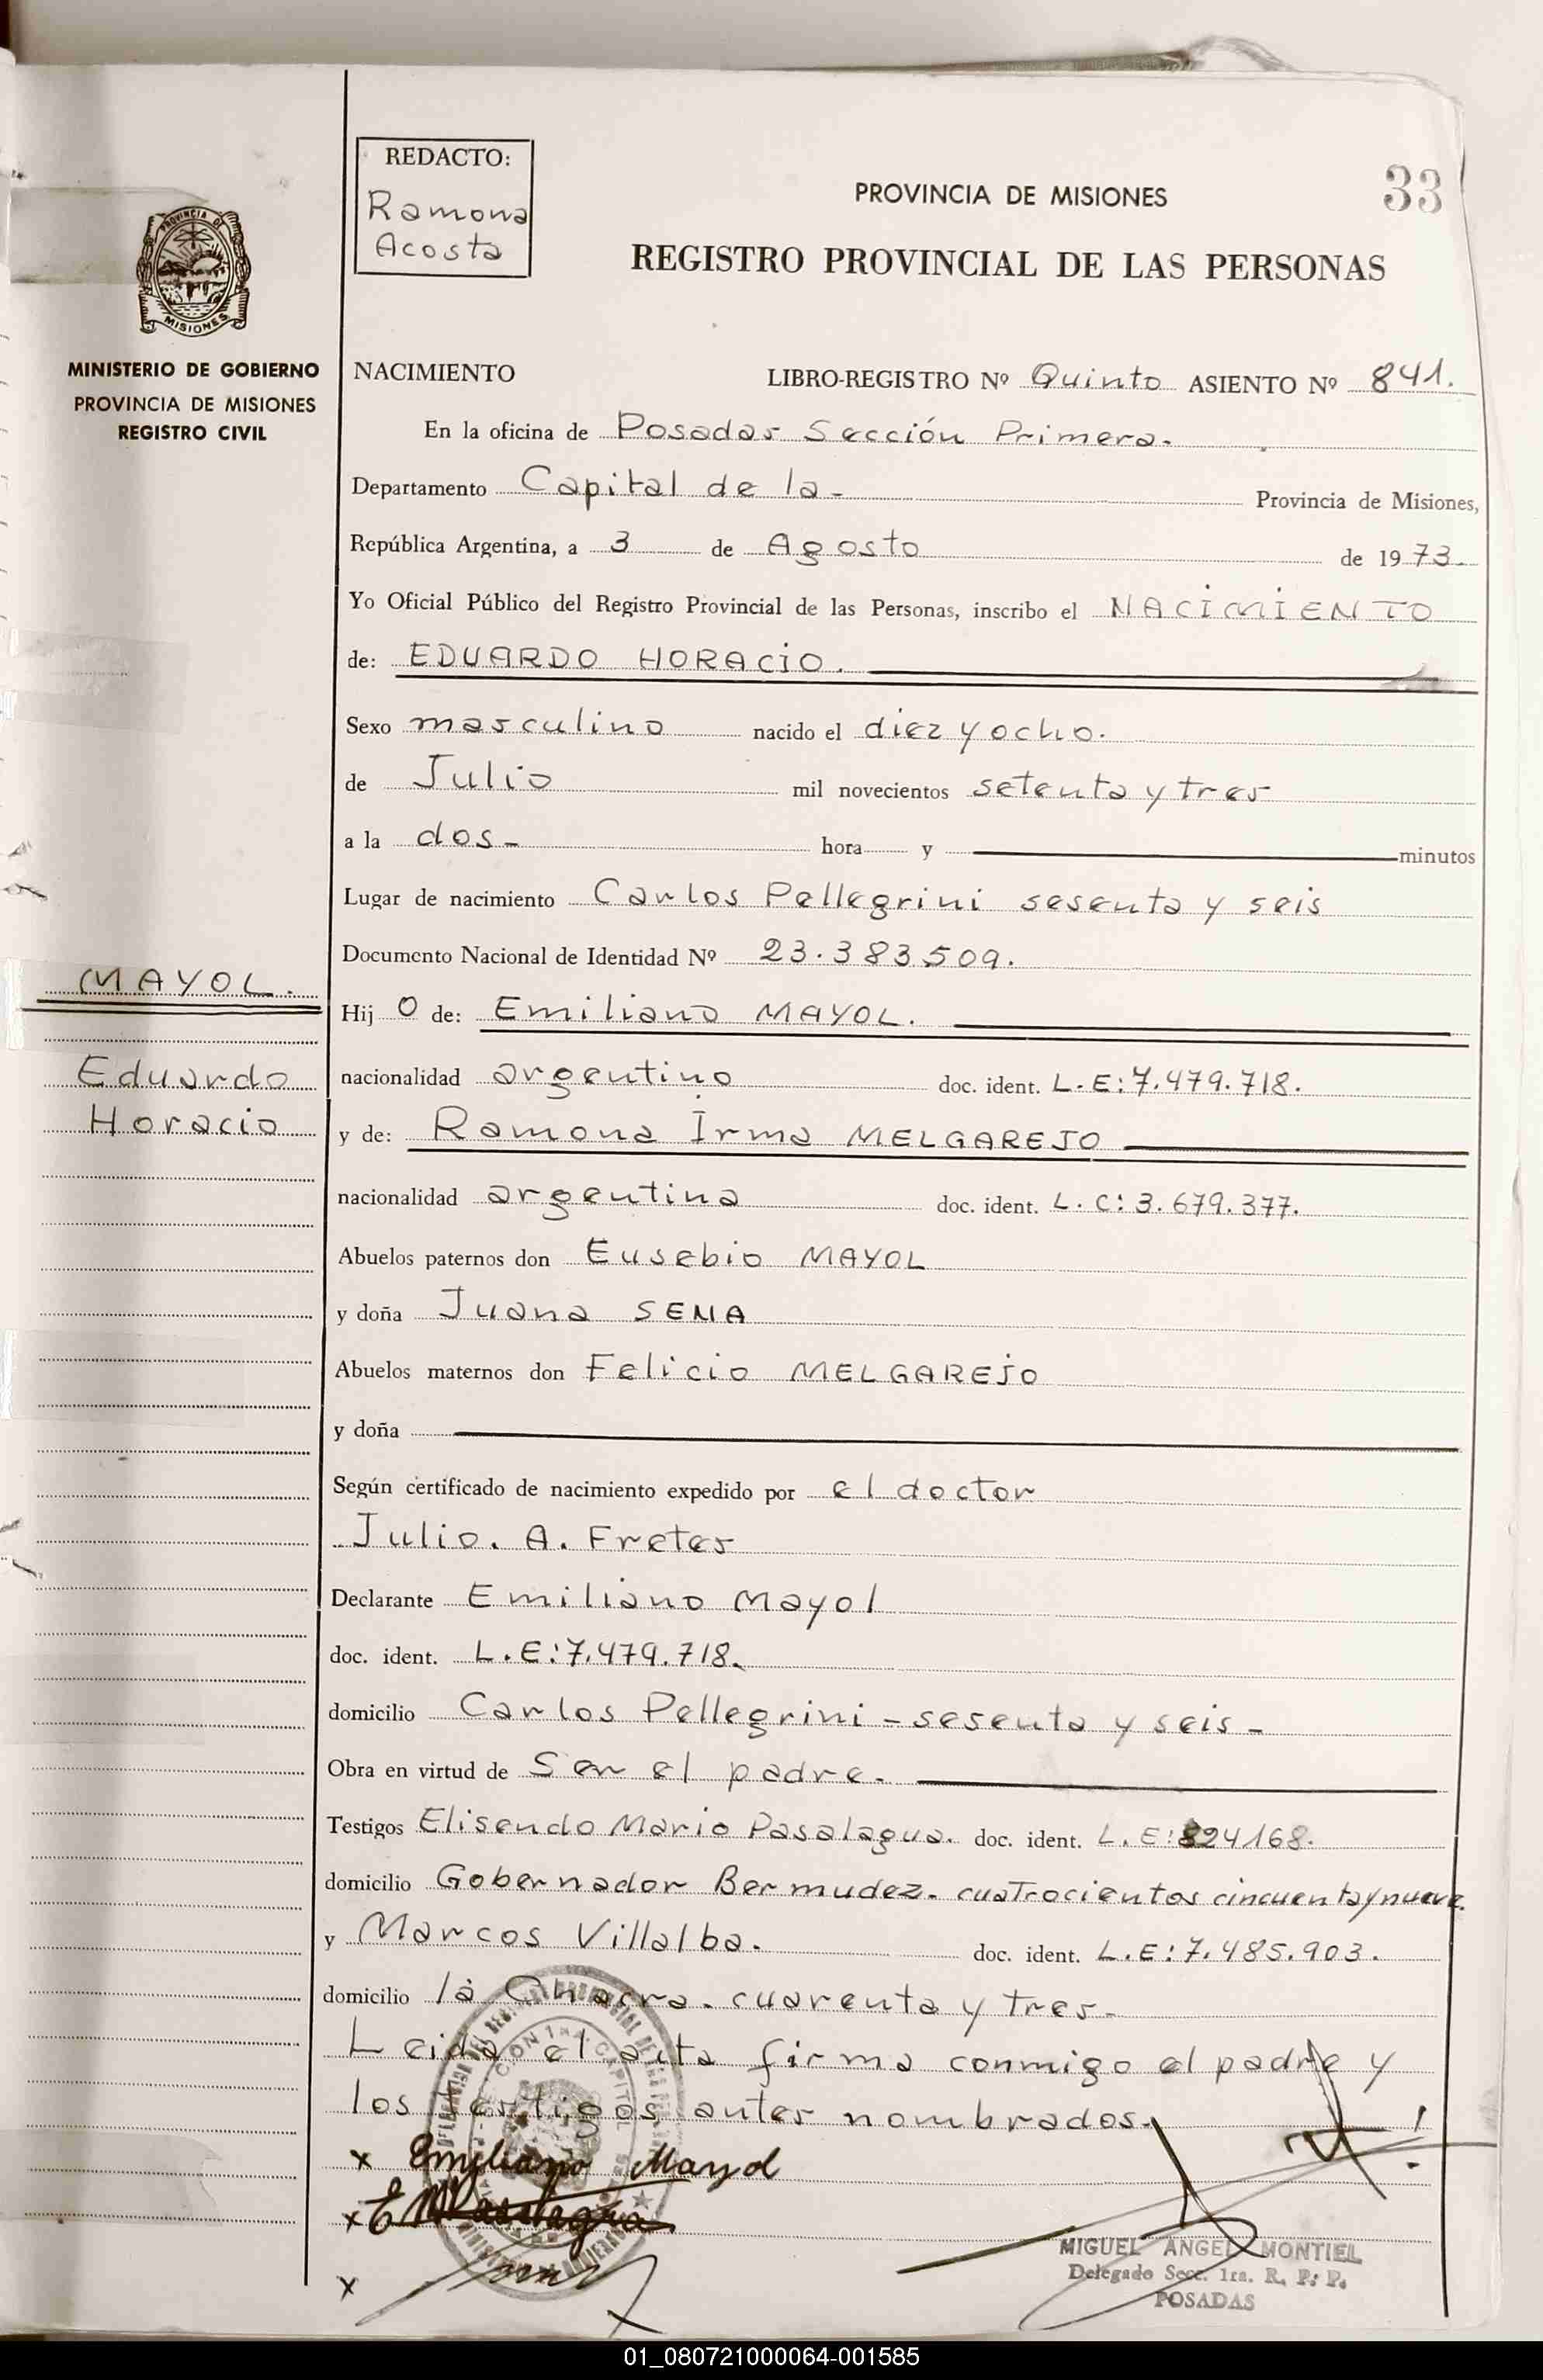 REDACTO:
Ramona
Acosta
33
PROVINCIA DE MISIONES
REGISTRO PROVINCIAL DE LAS PERSONAS
PROVINCIA DE
MISIONES
MINISTERIO DE GOBIERNO
PROVINCIA DE MISIONES
REGISTRO CIVIL
NACIMIENTO LIBRO-REGISTRO Nº Quinto ASIENTO Nº 841.
En la oficina de Posadas Sección Primera.
Departamento Capital de la - Provincia de Misiones,
República Argentina, a 3 de Agosto de 1973.
Yo Oficial Público del Registro Provincial de las Personas, inscribo el NACIMIENTO
de: EDUARDO HORACIO.
Sexo masculino nacido el diez y ocho.
de Julio mil novecientos setenta y tres
a la dos - hora y minutos
Lugar de nacimiento Carlos Pellegrini sesenta y seis
Documento Nacional de Identidad Nº 23.383.509.
MAYOL.
Hijo de: Emiliano MAYOL.
Eduardo
nacionalidad argentino doc. ident. L.E:7.479.718.
Horacio
y de: Ramona Irma MELGAREJO
nacionalidad argentina doc. ident. L.C:3.679.377.
Abuelos paternos don Eusebio MAYOL
y doña Juana SENA
Abuelos maternos don Felicio MELGAREJO
y doña
Según certificado de nacimiento expedido por el doctor
Julio. A. Fretes
Declarante Emiliano Mayol
doc. ident. L.E:7.479.718.
domicilio Carlos Pellegrini - sesenta y seis -
Obra en virtud de Ser el padre.
Testigos Elisendo Mario Pasalagua. doc. ident. L.E:824168.
domicilio Gobernador Bermudez. cuatrocientos cincuenta y nueve.
y Marcos Villalba. doc. ident. L.E:7.485.903.
domicilio la Chacra. cuarenta y tres -
Leida el acta firma conmigo el padre y
los testigos antes nombrados.
x Emiliano Mayol
x E M Pasalagua
x
MIGUEL ANGEL MONTIEL
Delegado Secc. 1ra. R. P. P.
POSADAS
01_080721000064-001585